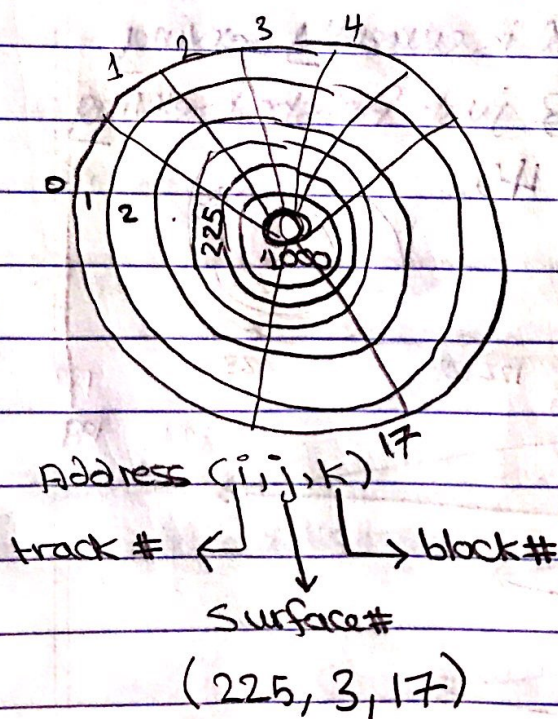 1 2 3 4
0 1 2 225 1000
17
Address (i,j,k)
track # block#
Surface#
(225, 3, 17)